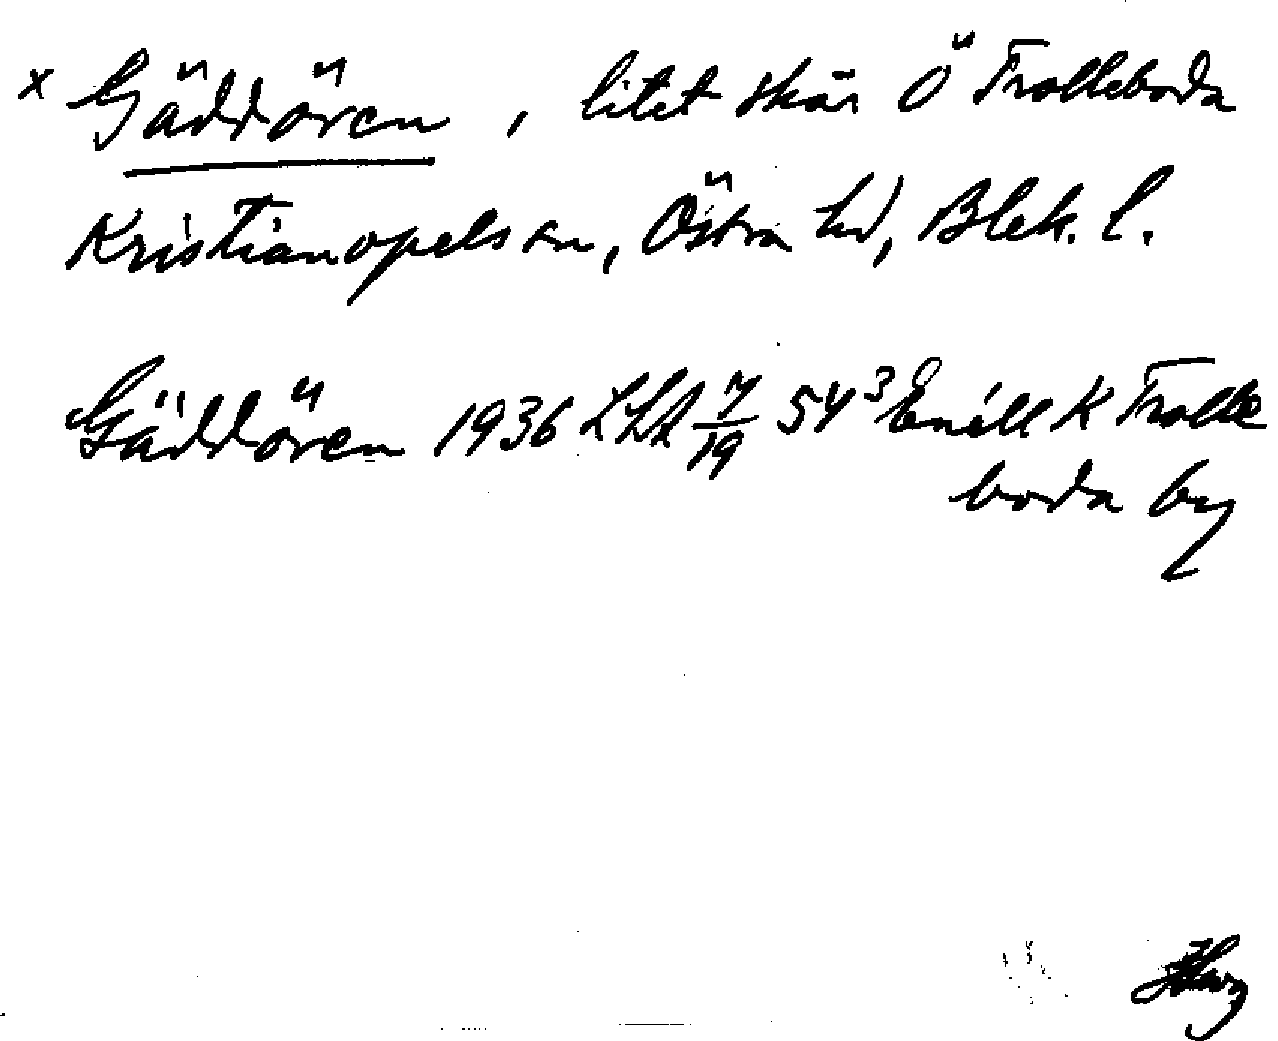 x Gäddören, litet skär Ö Trolleboda
Kristianopels sn, Östra hd, Blek. l.
Gäddören 1936 LSA 7/19 54³ Enskk K Trolle
boda by